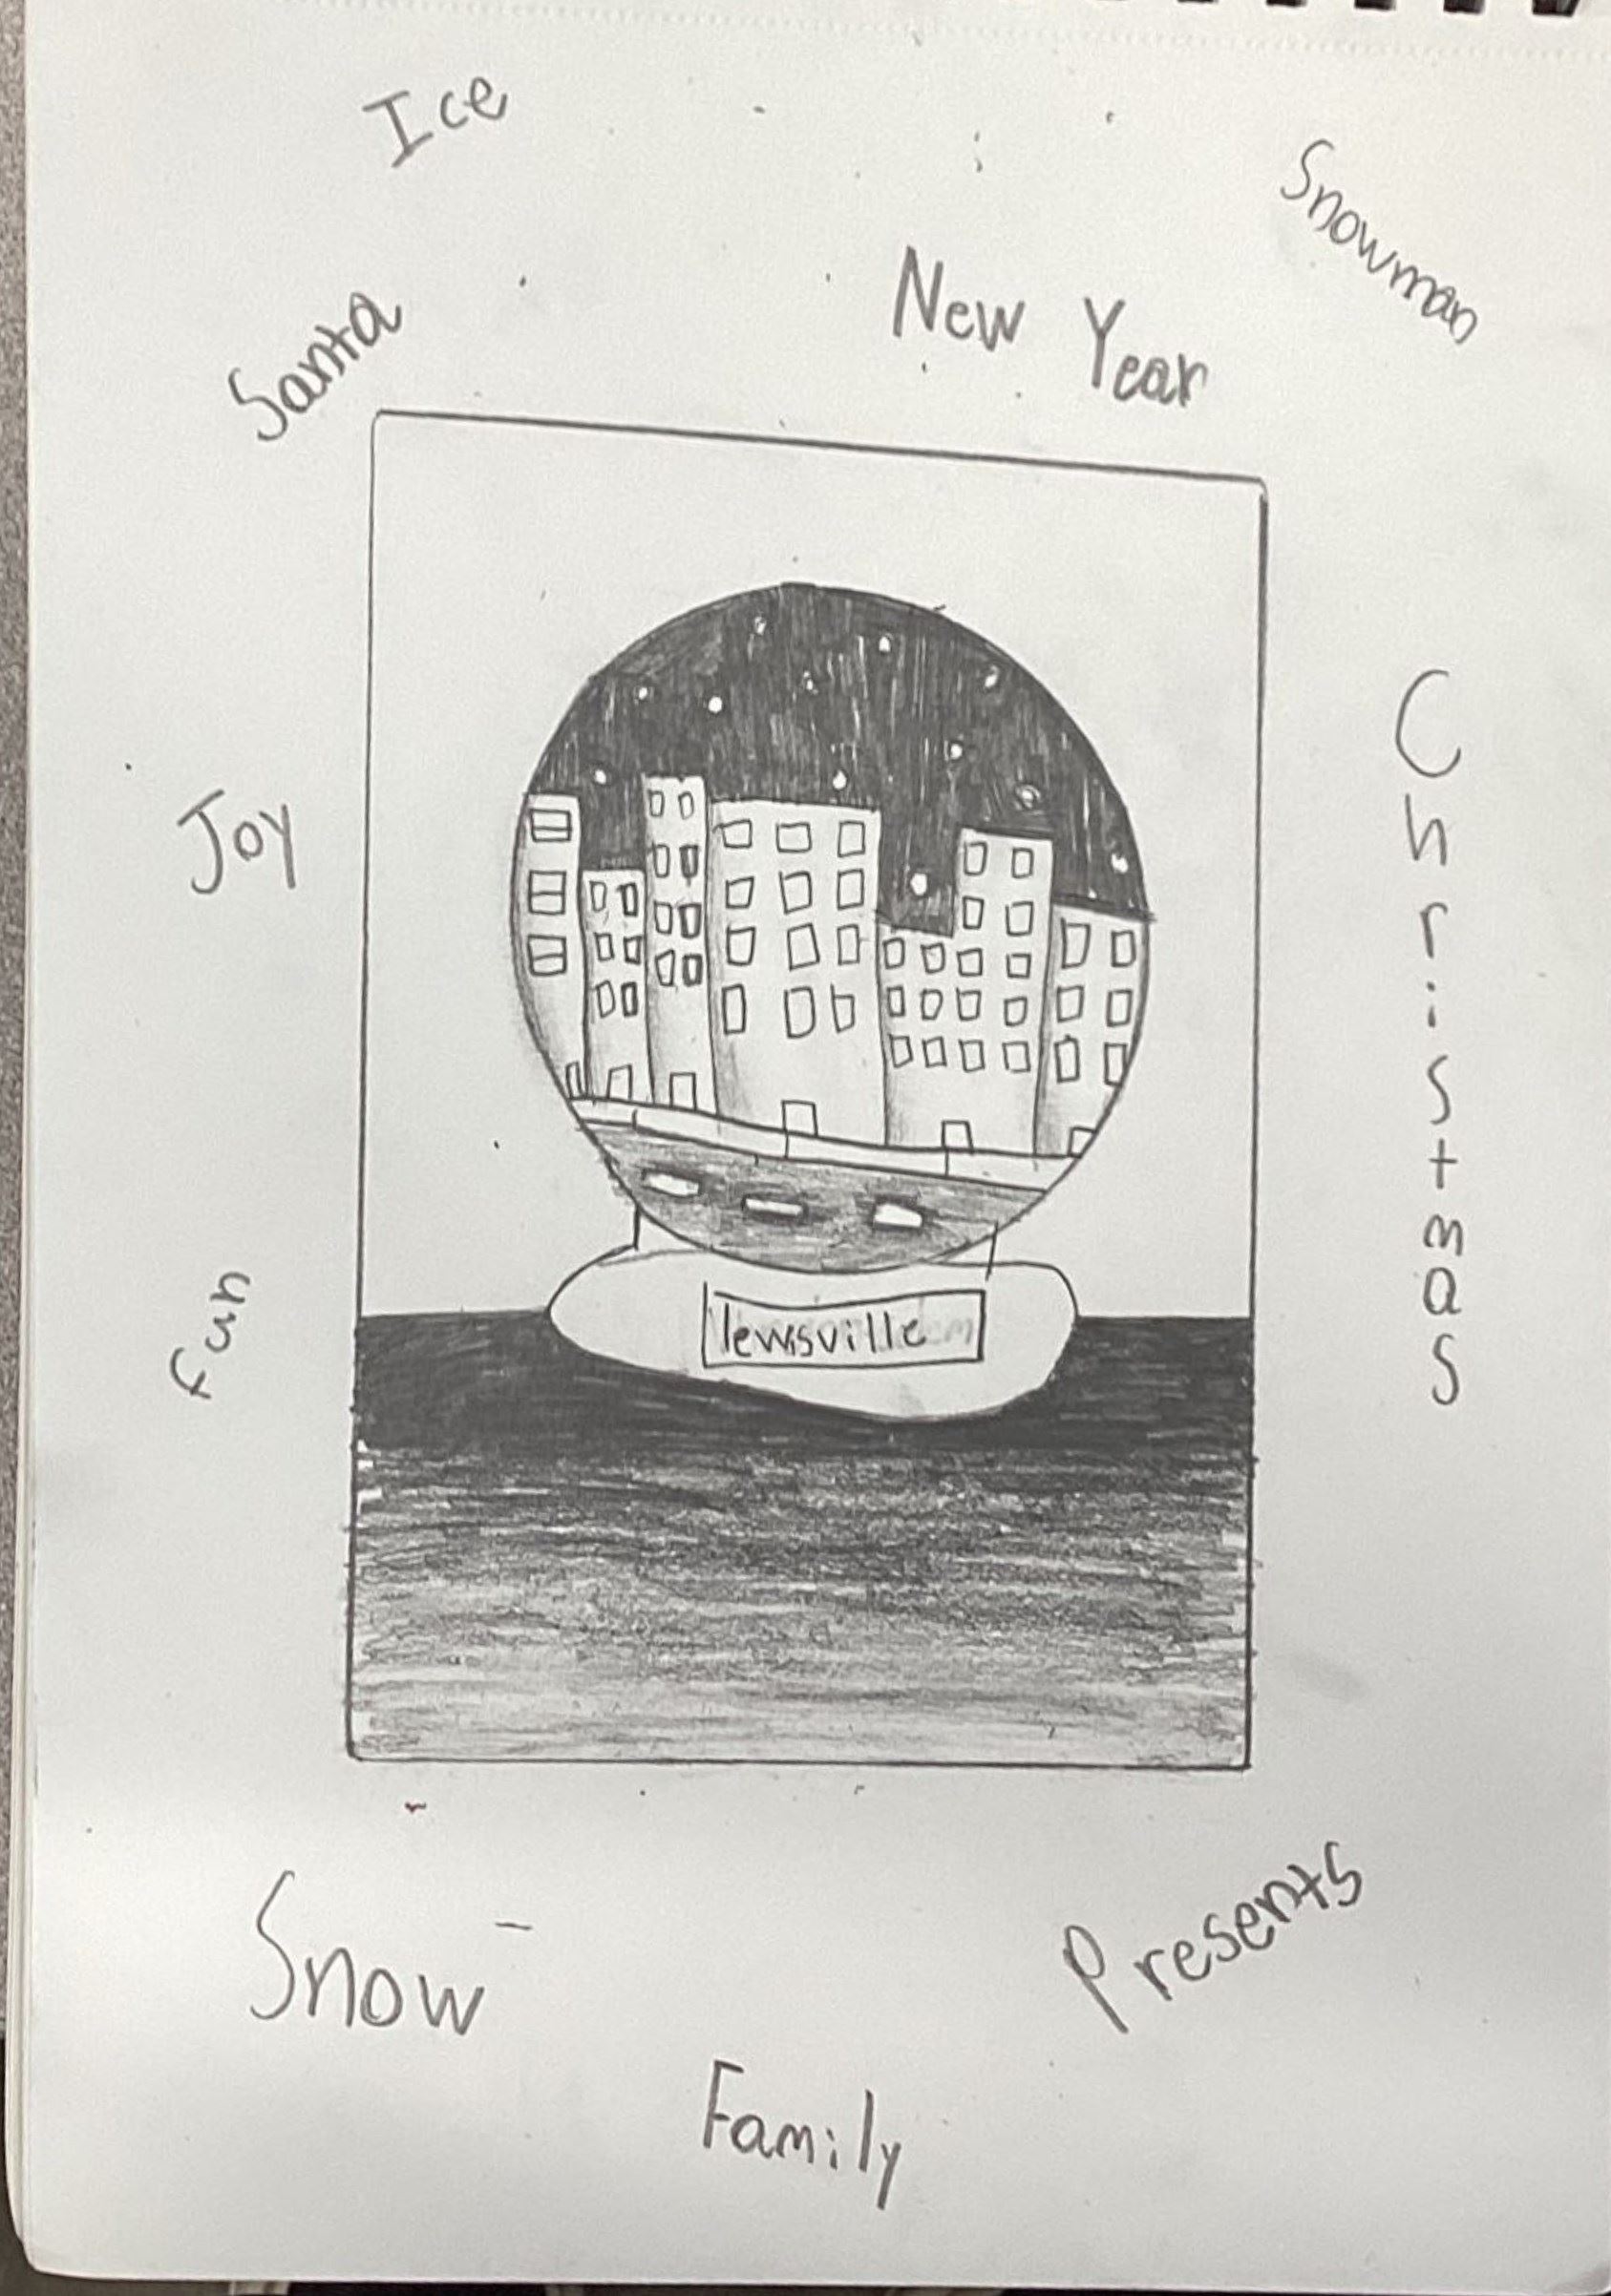 Ice
Snowman
Santa
New Year
Joy
Christmas
fun
lewisville
Snow
Presents
Family